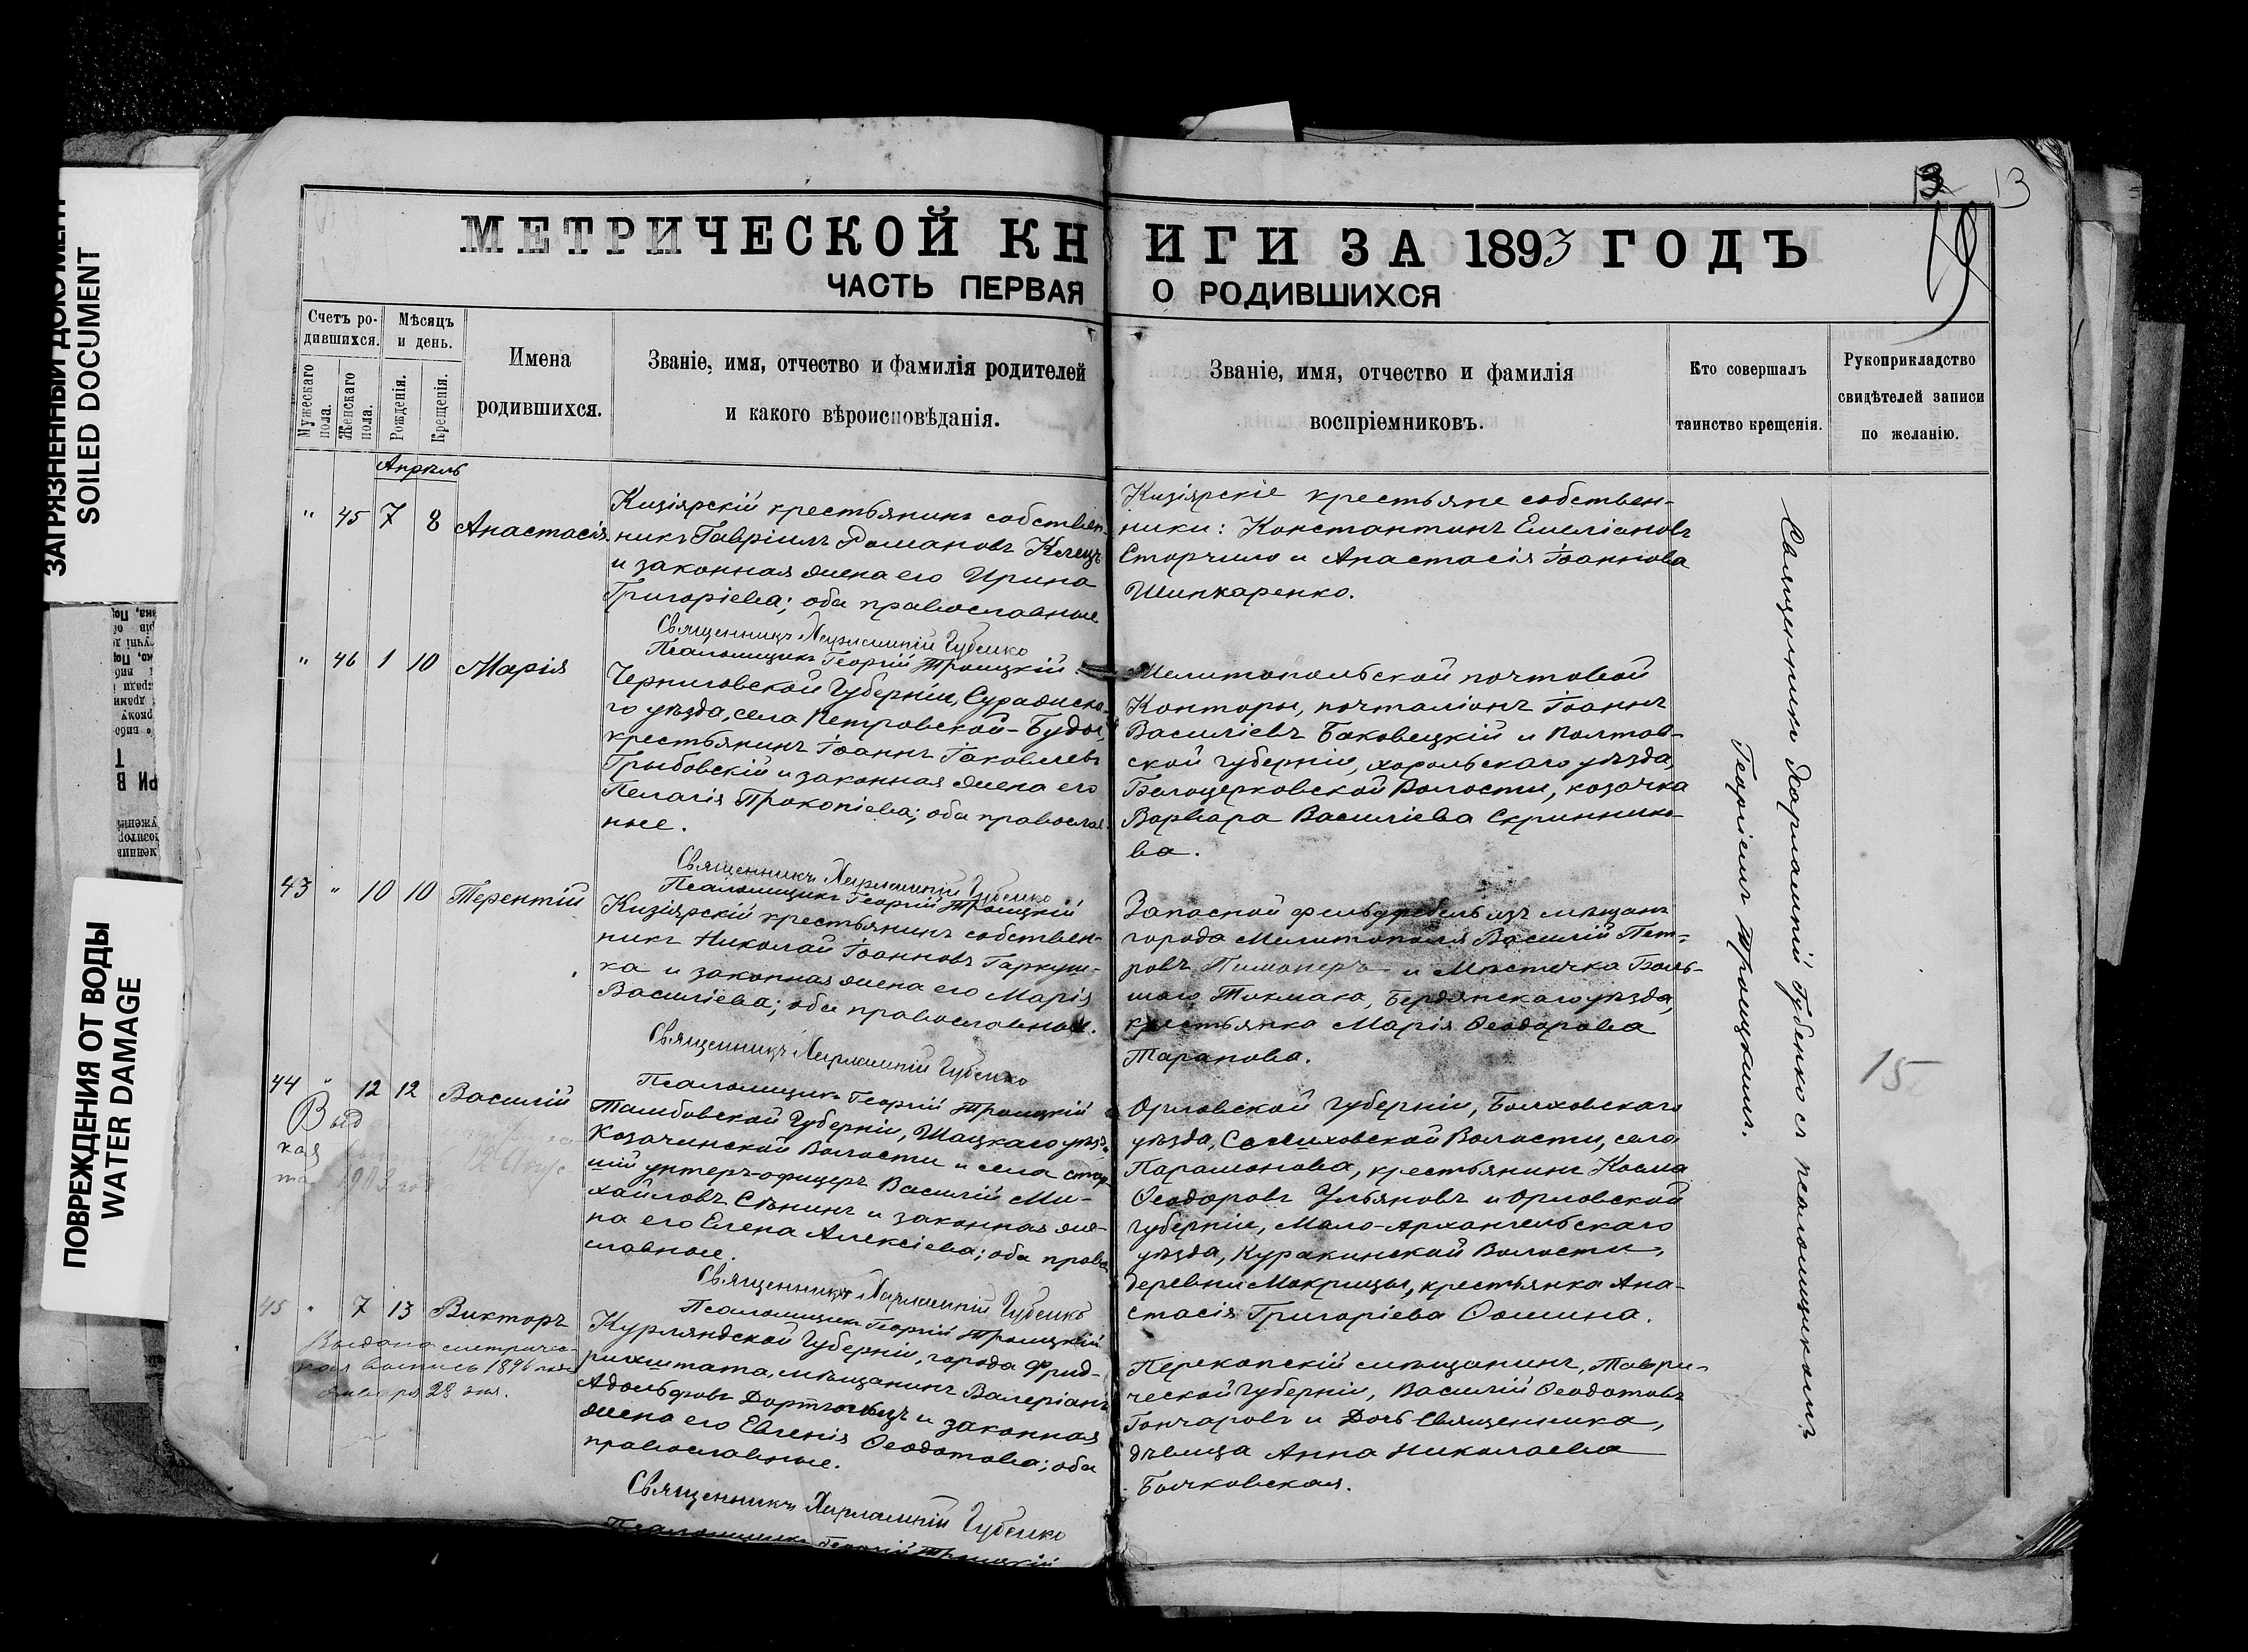 ЗАГРЯЗНЕННЫЙ ДОКУМЕНТ
SOILED DOCUMENT
ПОВРЕЖДЕНИЯ ОТ ВОДЫ
WATER DAMAGE
13
МЕТРИЧЕСКОЙ КНИГИ ЗА 1893 ГОДЪ
ЧАСТЬ ПЕРВАЯ О РОДИВШИХСЯ
Счетъ ро-
дившихся.
Мужескаго пола.
Женскаго пола.
Мѣсяцъ
и день.
Рожденія.
Крещенія.
Имена
родившихся.
Званіе, имя, отчество и фамилія родителей
и какого вѣроисповѣданія.
Званіе, имя, отчество и фамилія
воспріемниковъ.
Кто совершалъ
таинство крещенія.
Рукоприкладство
свидѣтелей записи
по желанію.
Апрѣль
" 45 7 8 Анастасія
Кизіярскій крестьянинъ собствен-
никъ Гавріилъ Романовъ
и законная жена его Ирина
Григоріева; оба православные
Священникъ Харлампій Губенко
Псаломщикъ Георгій Троицкій
Кизіярскіе крестьяне собствен-
ники: Константинъ Емеліановъ
Сторчило и Анастасія Іоаннова
Шинкаренко.
" 46 1 10 Марія
Черниговской Губерніи, Суражска-
го уѣзда, села Петровской-Буды,
крестьянинъ Іоаннъ Іаковлевъ
Грыбовскій и законная жена его
Пелагія Прокопіева; оба православ-
ные.
Священникъ Харлампій Губенко
Псаломщикъ Георгій Троицкій
Мелитопольской почтовой
Конторы, почталіонъ Іоаннъ
Василіевъ Баковецкій и Полтав-
ской губерніи, хорольскаго уѣзда,
Бѣлоцерковской Волости, козачка
Варвара Василіева Скриннико-
ва.
43 " 10 10 Терентій
Кизіярскій крестьянинъ собствен-
никъ Николай Іоанновъ Гаркуш-
ка и законная жена его Марія
Василіева; оба православные.
Священникъ Харлампій Губенко
Псаломщикъ Георгій Троицкій
Запасной фельдфебель изъ мѣщанъ
города Мелитополя Василій Пет-
ровъ и Мѣстечка Боль-
шаго Токмака, Бердянскаго уѣзда,
крестьянка Марія Ѳеодорова
Таранова.
44 " 12 12 Василій
Выд
кая
та 1903 год
Тамбовской Губерніи, Шацкаго уѣзд.
Козачинской Волости и села стар-
шій унтеръ-офицеръ Василій Ми-
хайловъ Сѣнинъ и законная же-
на его Елена Алексіева; оба право-
славные.
Священникъ Харлампій Губенко
Псаломщикъ Георгій Троицкій
Орловской Губерніи, Болховскаго
уѣзда, Волости, села
Парамонова, крестьянинъ Косма
Ѳеодоровъ Ульяновъ и Орловской
губерніи, Мало-Архангельскаго
уѣзда, Куракинской Волости,
деревни Мокрицы, крестьянка Ана-
стасія Григоріева Ѳомина.
45 " 7 13 Викторъ
Выдана метричес-
кая выпись 1896 года
Января 28 дня.
Курляндской Губерніи, города Фрид-
рихштата, мѣщанинъ Валеріанъ
Адольфовъ и законная
жена его Евгенія Ѳеодотова; оба
православные.
Священникъ Харлампій Губенко
Псаломщикъ Георгій Троицкій
Перекопскій мѣщанинъ, Таври-
ческой Губерніи, Василій Ѳеодотовъ
Гончаровъ и Дочь Священника,
дѣвица Анна Николаева
Бычковская.
Священникъ Харлампій Губенко съ псаломщикомъ
Георгіемъ Троицкимъ.
15